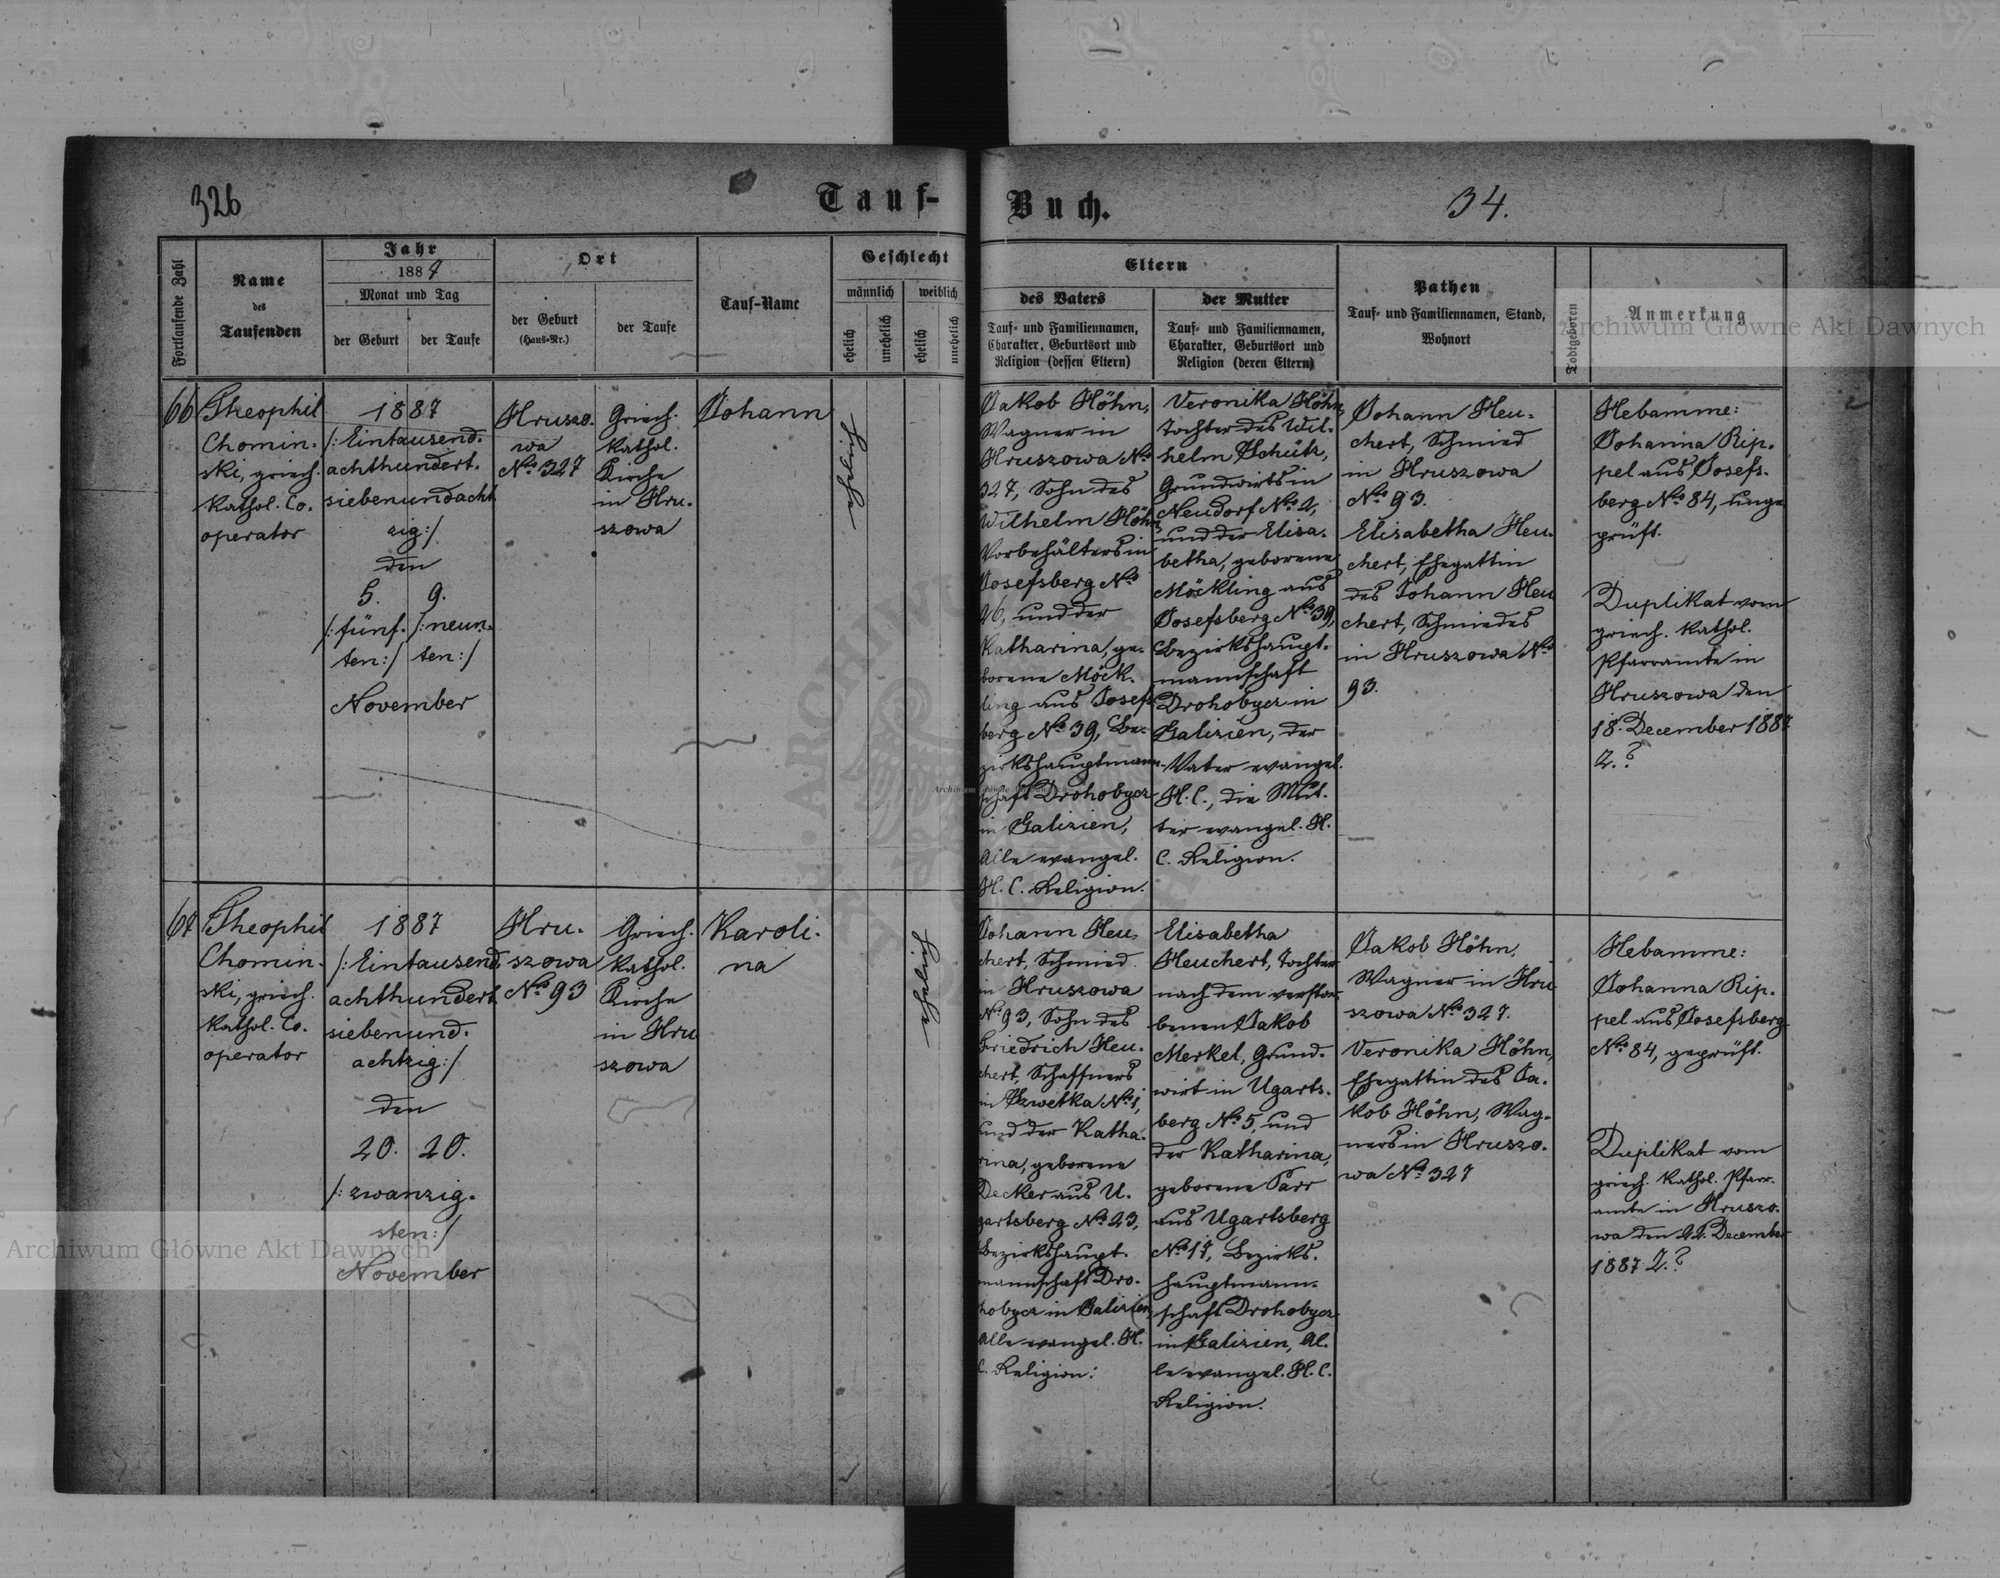 326
Tauf-
Buch.
34.
Fortlaufende Zahl
Name
des
Taufenden
Jahr
1887
Monat und Tag
der Geburt
der Taufe
Ort
der Geburt
(Haus-Nr.)
der Taufe
Tauf-Name
Geschlecht
männlich
weiblich
ehelich
unehelich
ehelich
unehelich
Eltern
des Vaters
Tauf- und Familiennamen,
Charakter, Geburtsort und
Religion (dessen Eltern)
der Mutter
Tauf- und Familiennamen,
Charakter, Geburtsort und
Religion (deren Eltern)
Pathen
Tauf- und Familiennamen, Stand,
Wohnort
Todtgeboren
Anmerkung
66
Theophil
Chomin-
ski, griech.
kathol. Co-
operator
1887
/:Eintausend-
achthundert-
siebenundacht
zig:/
den
5. 9.
/:fünf- /:neun-
ten:/ ten:/
November
Hruszo-
wa
No. 327
Griech.
kathol.
Kirche
in Hru-
szowa
Johann
Eheliche
Jakob Höhn,
Wagner in
Hruszowa No
327, Sohn des
Wilhelm Höhn
Vorbehälters in
Josefsberg No
26, und der
Katharina, ge-
borene Möck-
ling aus Josefs
berg No 39, Be-
zirkshauptmann-
schaft Drohobycz
in Galizien,
Alle evangel.
H. C. Religion.
Veronika Höhn,
Tochter des Wil-
helm Schütz,
Grundwirts in
Neudorf No 2,
und der Elisa-
betha, geborene
Möckling aus
Josefsberg No 39,
Bezirkshaupt-
mannschaft
Drohobycz in
Galizien, der
Vater evangel.
H. C., die Mut-
ter evangel. H.
C. Religion.
Johann Heu-
chert, Schmied
in Hruszowa
No 93.
Elisabetha Heu-
chert, Ehegattin
des Johann Heu
chert, Schmiedes
in Hruszowa No
93.
Hebamme:
Johanna Rip-
pel aus Josefs-
berg No 84, unge
prüft.
Duplikat vom
griech. kathol.
Pfarramte in
Hruszowa den
18. December 1887
Z.?
67
Theophil
Chomin-
ski, griech.
kathol. Co-
operator
1887
/:Eintausend
achthundert
siebenund-
achtzig:/
den
20. 20.
/:zwanzig-
sten:/
November
Hru-
szowa
No 93
Griech.
kathol.
Kirche
in Hru
szowa
Karoli-
na
Eheliche
Johann Heu-
chert, Schmied
in Hruszowa
No 93, Sohn des
Friedrich Heu-
chert, Schaffners
in Zwetka No 1,
und der Katha-
rina, geborene
Decker aus U-
gartsberg No 23,
Bezirkshaupt-
mannschaft Dro-
hobycz in Galizien,
Alle evangel. H.
C. Religion:
Elisabetha
Heuchert, Tochter
nach dem verstor-
benen Jakob
Merkel, Grund-
wirt in Ugarts-
berg No 5, und
der Katharina,
geborene Parr
aus Ugartsberg
No 17, Bezirks-
hauptmann-
schaft Drohobycz
in Galizien, Al-
le evangel. H. C.
Religion.
Jakob Höhn,
Wagner in Hru
szowa No 327.
Veronika Höhn,
Ehegattin des Ja-
kob Höhn, Wag-
ners in Hruszo-
wa No 327
Hebamme:
Johanna Rip-
pel aus Josefsberg
No 84, geprüft.
Duplikat vom
griech. kathol. Pfarr-
amte in Hruszo-
wa den 22. December
1887 Z.?
Archiwum Główne Akt Dawnych
Archiwum Główne Akt Dawnych
Archiwum Główne Akt Dawnych